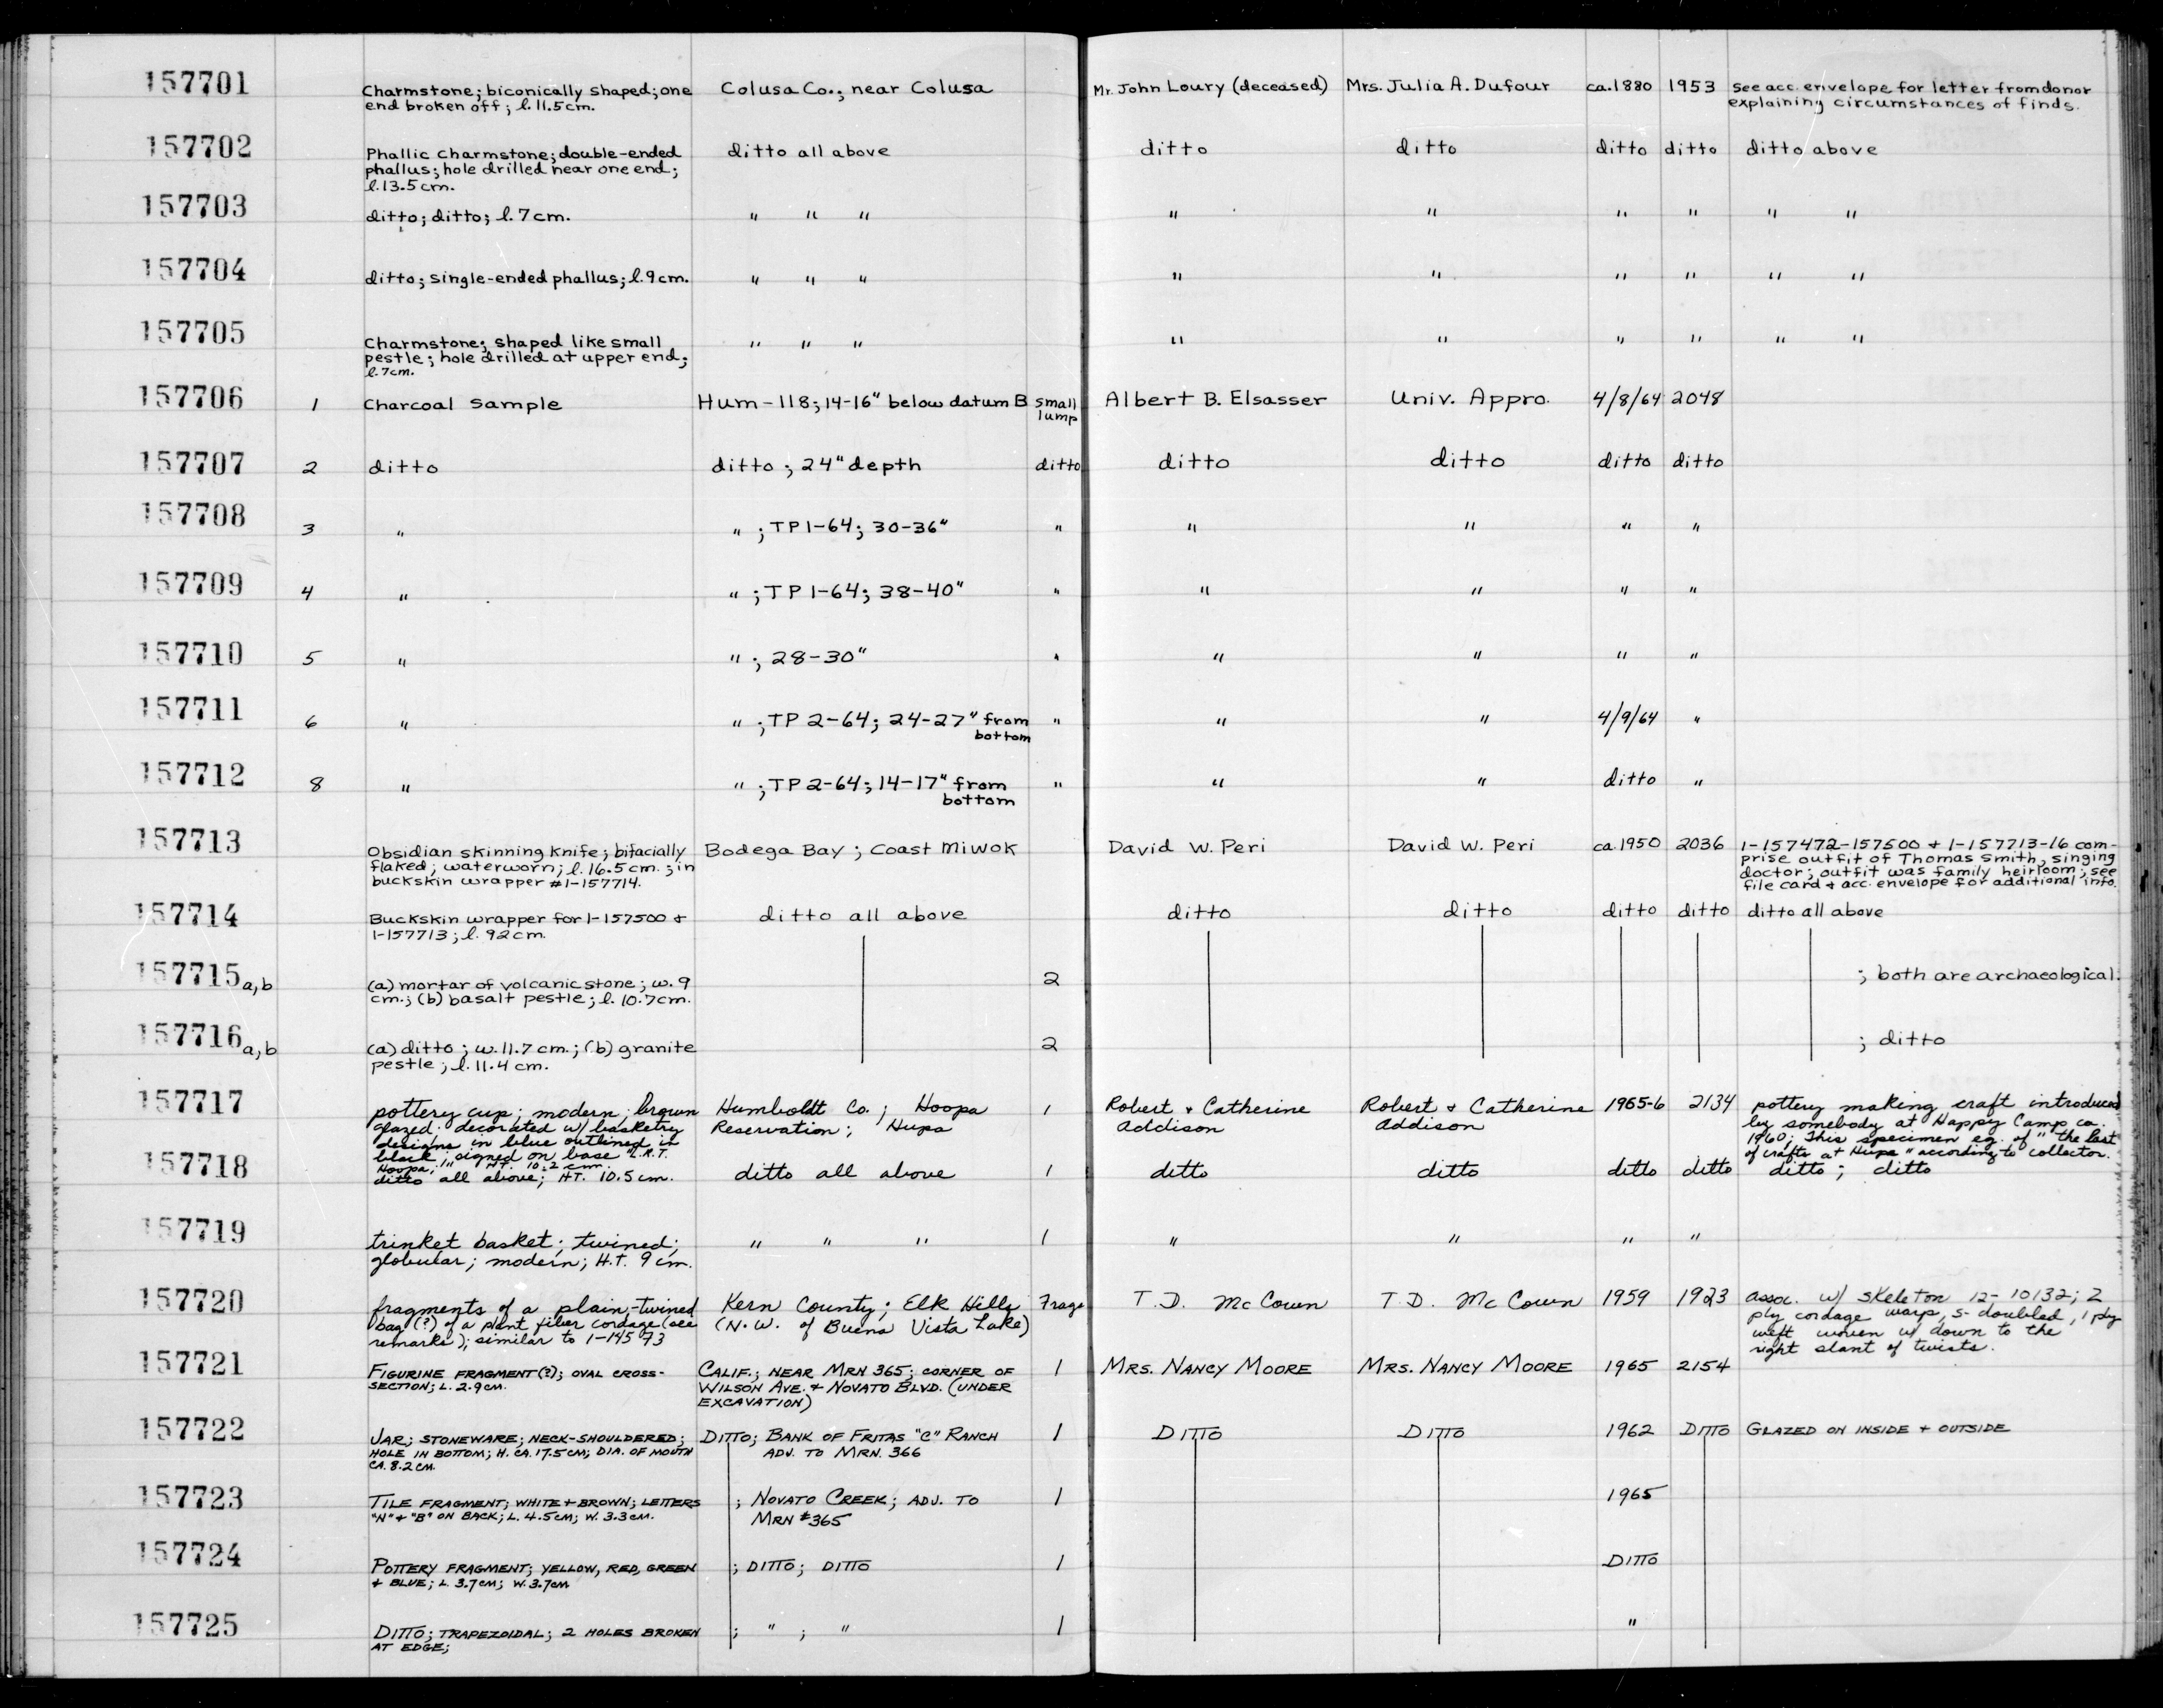 157701 Charmstone; biconically shaped; one Colusa Co., near Colusa Mr. John Loury (deceased) Mrs. Julia A. Dufour ca. 1880 1953 See acc. envelope for letter from donor
end broken off; l. 11.5 cm. explaining circumstances of finds.
157702 Phallic Charmstone; double-ended ditto all above ditto ditto ditto ditto ditto above
phallus; hole drilled near one end;
l. 13.5 cm.
157703 ditto; ditto; l. 7 cm. " " " " " " " " "
157704 ditto; single-ended phallus; l. 9 cm. " " " " " " " " "
157705 Charmstone; shaped like small " " " " " " " " "
pestle; hole drilled at upper end;
l. 7 cm.
157706 1 Charcoal Sample Hum-118; 14-16" below datum B small Albert B. Elsasser Univ. Appro. 4/8/64 2048
lump
157707 2 ditto ditto; 24" depth ditto ditto ditto ditto ditto
157708 3 " " ; TP 1-64; 30-36" " " " " "
157709 4 " " ; TP 1-64; 38-40" " " " " "
157710 5 " " ; 28-30" " " " " "
157711 6 " " ; TP 2-64; 24-27" from " " " 4/9/64 "
bottom
157712 8 " " ; TP 2-64; 14-17" from " " " ditto "
bottom
157713 Obsidian skinning knife; bifacially Bodega Bay; Coast Miwok David W. Peri David W. Peri ca. 1950 2036 1-157472-157500 + 1-157713-16 com-
flaked; waterworn; l. 16.5 cm.; in prise outfit of Thomas Smith, singing
buckskin wrapper #1-157714. doctor; outfit was family heirloom; see
file card + acc. envelope for additional info.
157714 Buckskin wrapper for 1-157500 + ditto all above ditto ditto ditto ditto ditto all above
1-157713; l. 92 cm.
157715 a,b (a) mortar of volcanic stone; w. 9 2 ; both are archaeological.
cm.; (b) basalt pestle; l. 10.7 cm.
157716 a,b (a) ditto; w. 11.7 cm.; (b) granite 2 ; ditto
pestle; l. 11.4 cm.
157717 pottery cup; modern; brown Humboldt Co.; Hoopa 1 Robert + Catherine Robert + Catherine 1965-6 2134 pottery making craft introduced
glazed; decorated w/ basketry Reservation; Hupa Addison Addison by somebody at Happy Camp ca.
designs in blue outlined in 1960; This specimen eg. of "the last
black; signed on base "L.R.T. of crafts at Hupa" according to collector.
Hoopa,"; HT. 10.2 cm.
157718 ditto all above; HT. 10.5 cm. ditto all above 1 ditto ditto ditto ditto ditto; ditto
157719 trinket basket; twined; " " " 1 " " " "
globular; modern; H.T. 9 cm.
157720 fragments of a plain-twined Kern County; Elk Hills Frags T. D. McCown T. D. McCown 1959 1923 assoc. w/ skeleton 12-10132; 2
bag (?) of a plant fiber cordage (see (N.W. of Buena Vista Lake) ply cordage warp, S-doubled, 1 ply
remarks); similar to 1-14573 weft woven w/ down to the
right slant of twists.
157721 Figurine fragment (?); oval cross- Calif.; near Mrn 365; corner of 1 Mrs. Nancy Moore Mrs. Nancy Moore 1965 2154
section; L. 2.9 cm. Wilson Ave. + Novato Blvd. (under
excavation)
157722 Jar; stoneware; neck-shouldered; Ditto; Bank of Fritas "C" Ranch 1 Ditto Ditto 1962 Ditto Glazed on inside + outside
hole in bottom; H. ca. 17.5 cm; dia. of mouth adj. to Mrn. 366
ca. 8.2 cm.
157723 Tile fragment; white + brown; letters ; Novato Creek; adj. to 1 1965
"N" + "B" on back; L. 4.5 cm; W. 3.3 cm. Mrn #365
157724 Pottery fragment; yellow, red, green ; Ditto; Ditto 1 Ditto
+ blue; L. 3.7 cm; W. 3.7 cm
157725 Ditto; trapezoidal; 2 holes broken ; " ; " 1 "
at edge;